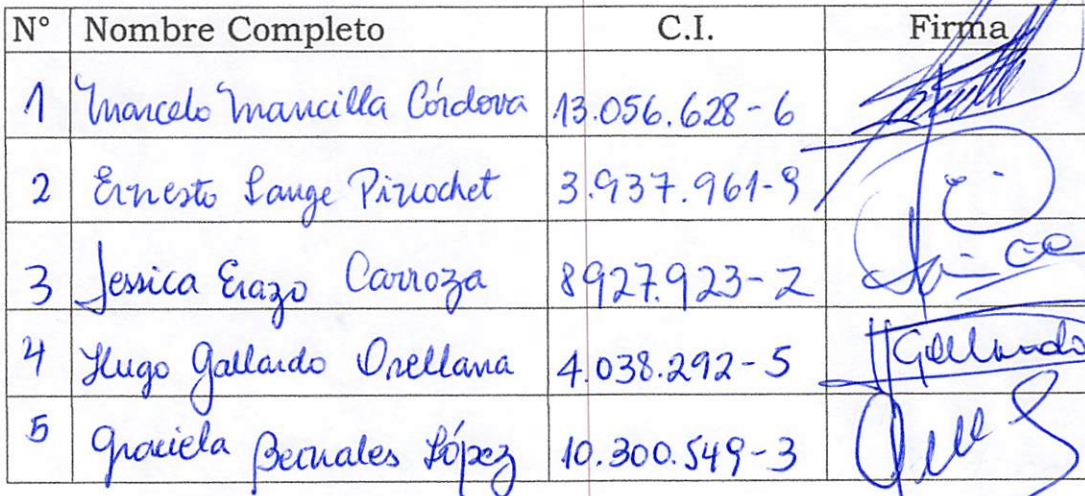 N° Nombre Completo C.I. Firma
1 Marcelo Mancilla Córdova 13.056.628-6
2 Ernesto Lange Pinochet 3.937.961-9
3 Jessica Erazo Carroza 8927.923-2
4 Hugo Gallardo Orellana 4.038.292-5 Gallardo
5 Graciela Bernales López 10.300.549-3